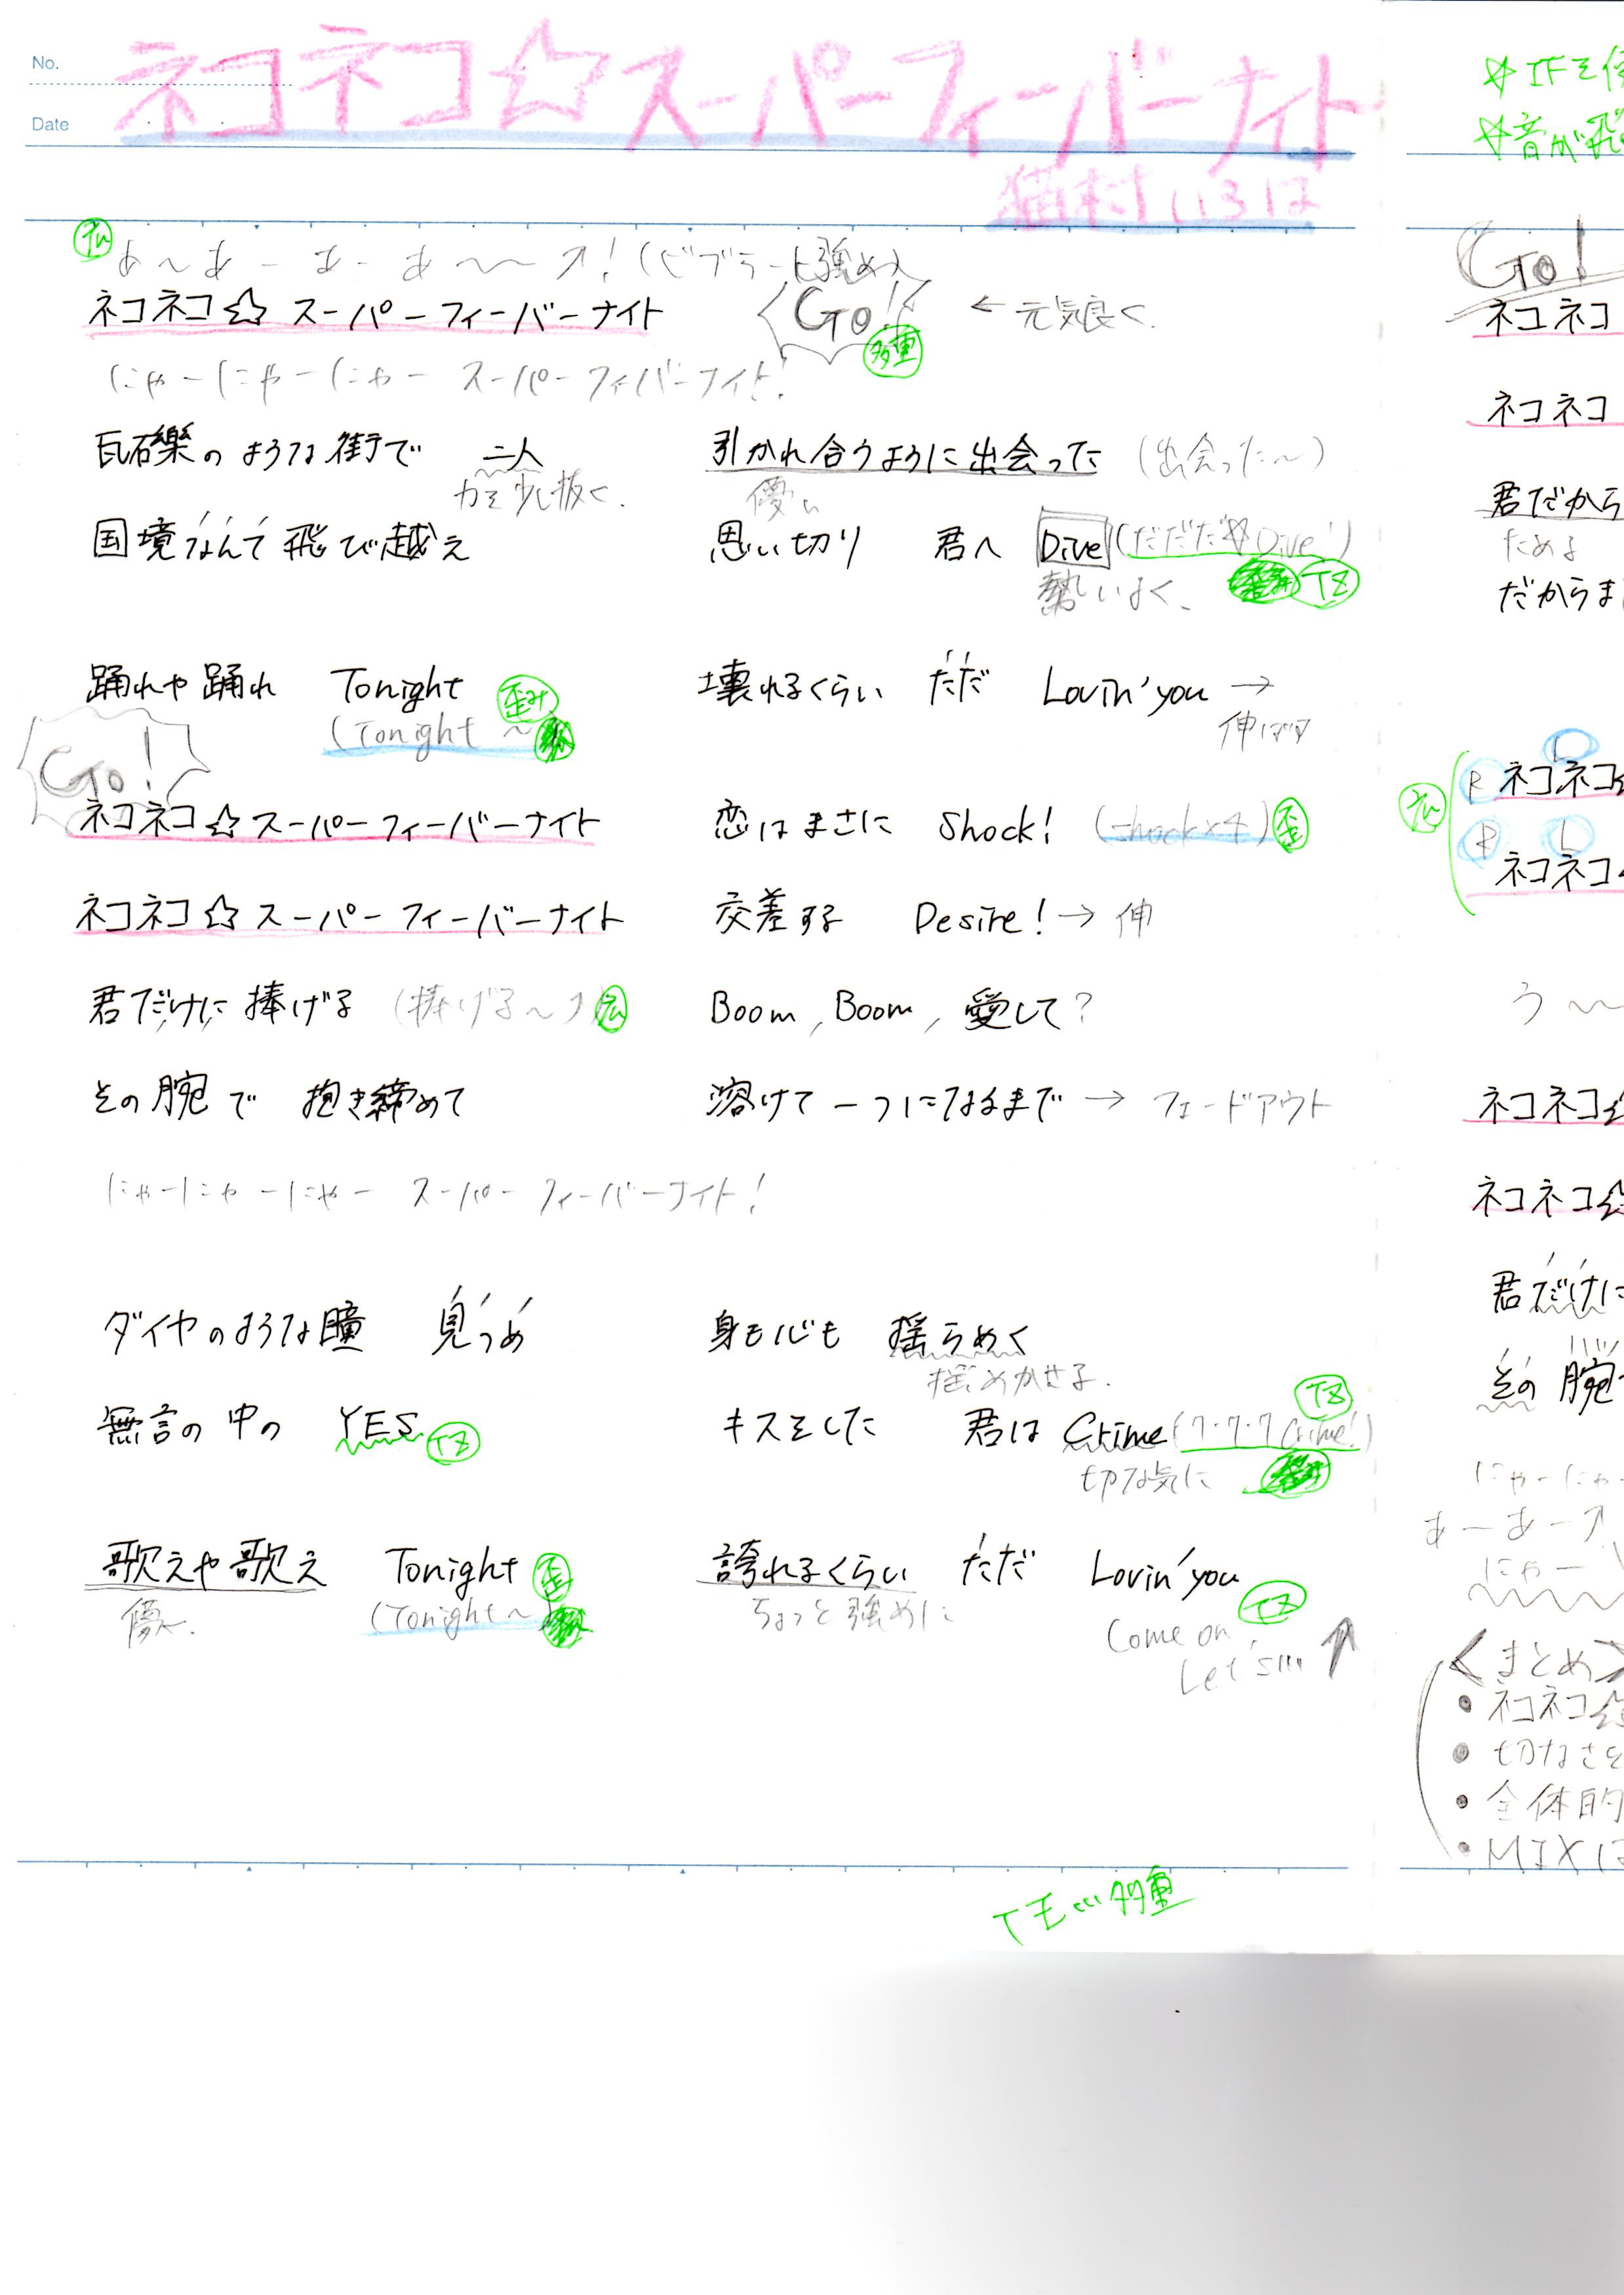 No.
Date
ネコネコ☆スーパーフィーバーナイト
猫村いろは
広
あ〜あーあーあ〜〜↗!(ビブラート強め)
ネコネコ☆スーパーフィーバーナイト Go! ← 元気良く.
多重
にゃーにゃーにゃー スーパーフィーバーナイト!
瓦礫のような街で 二人 引かれ合うように出会った (出会った〜)
力を少し抜く. 儚い
国境なんて飛び越え 思い切り 君へ Dive (だだだ☆Dive!)
勢いよく、 TZ
踊れや踊れ Tonight 歪み 壊れるくらい ただ Lovin'you →
(Tonight 〜 伸ばす
Go!
ネコネコ☆スーパーフィーバーナイト 恋はまさに Shock! (shock×4) 歪
ネコネコ☆スーパーフィーバーナイト 交差する Desire! → 伸
君だけに捧げる (捧げる〜↗) 広 Boom, Boom, 愛して?
その腕で 抱き締めて 溶けて一つになるまで → フェードアウト
にゃーにゃーにゃー スーパーフィーバーナイト!
ダイヤのような瞳 見つめ 身も心も 揺らめく
揺めかせる.
無言の中の YES TZ キスをした 君は Crime (ク・ク・ク Crime!) TZ
切な気に
歌えや歌え Tonight 歪 誇れるくらい ただ Lovin'you
儚 (Tonight〜 ちょっと強めに TZ
Come on,
Let's… ↑
TZ…多重
☆IFを
☆音が飛
Go!
ネコネコ
ネコネコ
君だから
ためる
だからま
L
R ネコネコ☆
広
R L
ネコネコ
う〜
ネコネコ☆
ネコネコ☆
君だけに
その 腕
にゃーにゃ
あーあー↗
にゃー
<まとめ>
• ネコネコ☆
• 切なさを
• 全体的
• MIXは